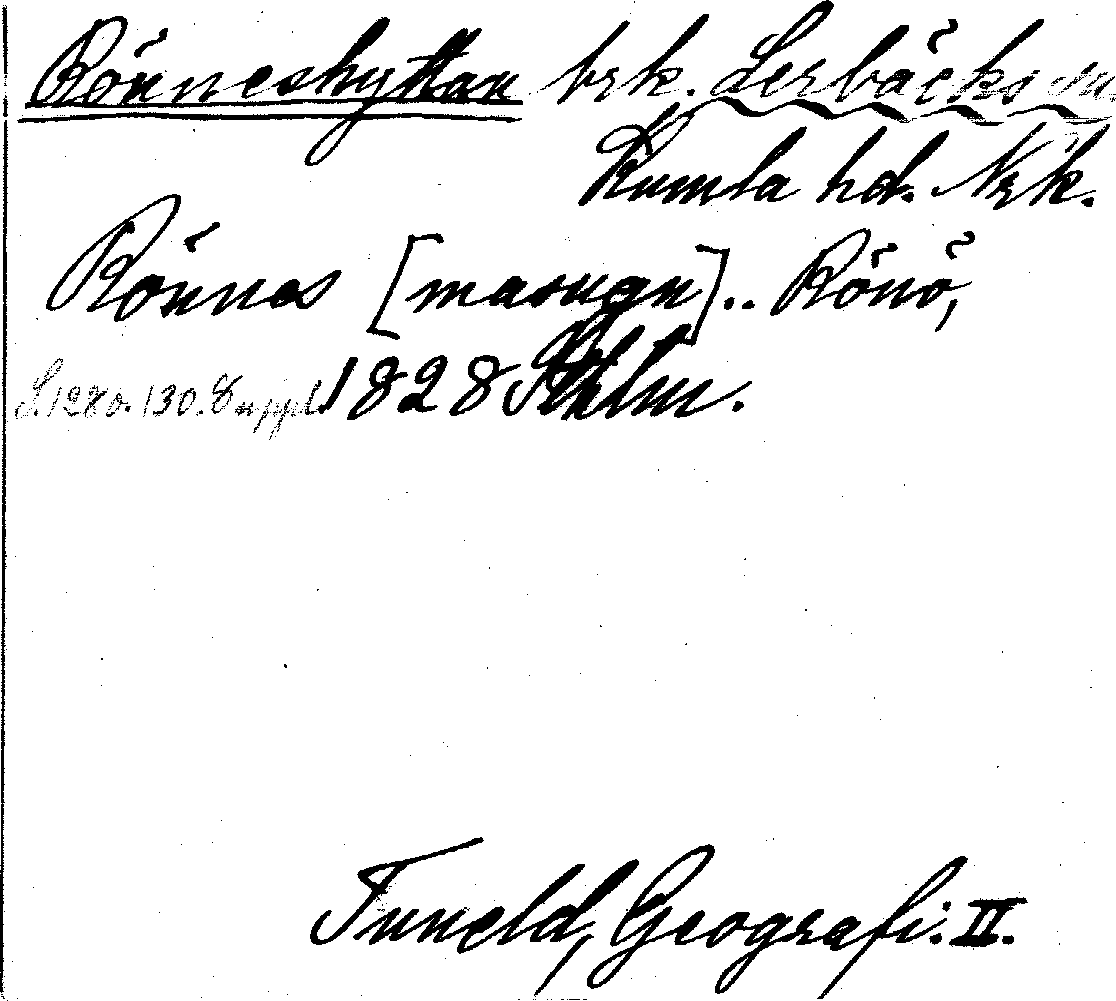 Rönneshyttan brk. Lerbäcks sn
Kumla hd. Nrk.
Rönnes [masugn].. Rönö,
S. 128 o. 130. Suppl. 1828 Sthlm.
Tuneld, Geografi. II.